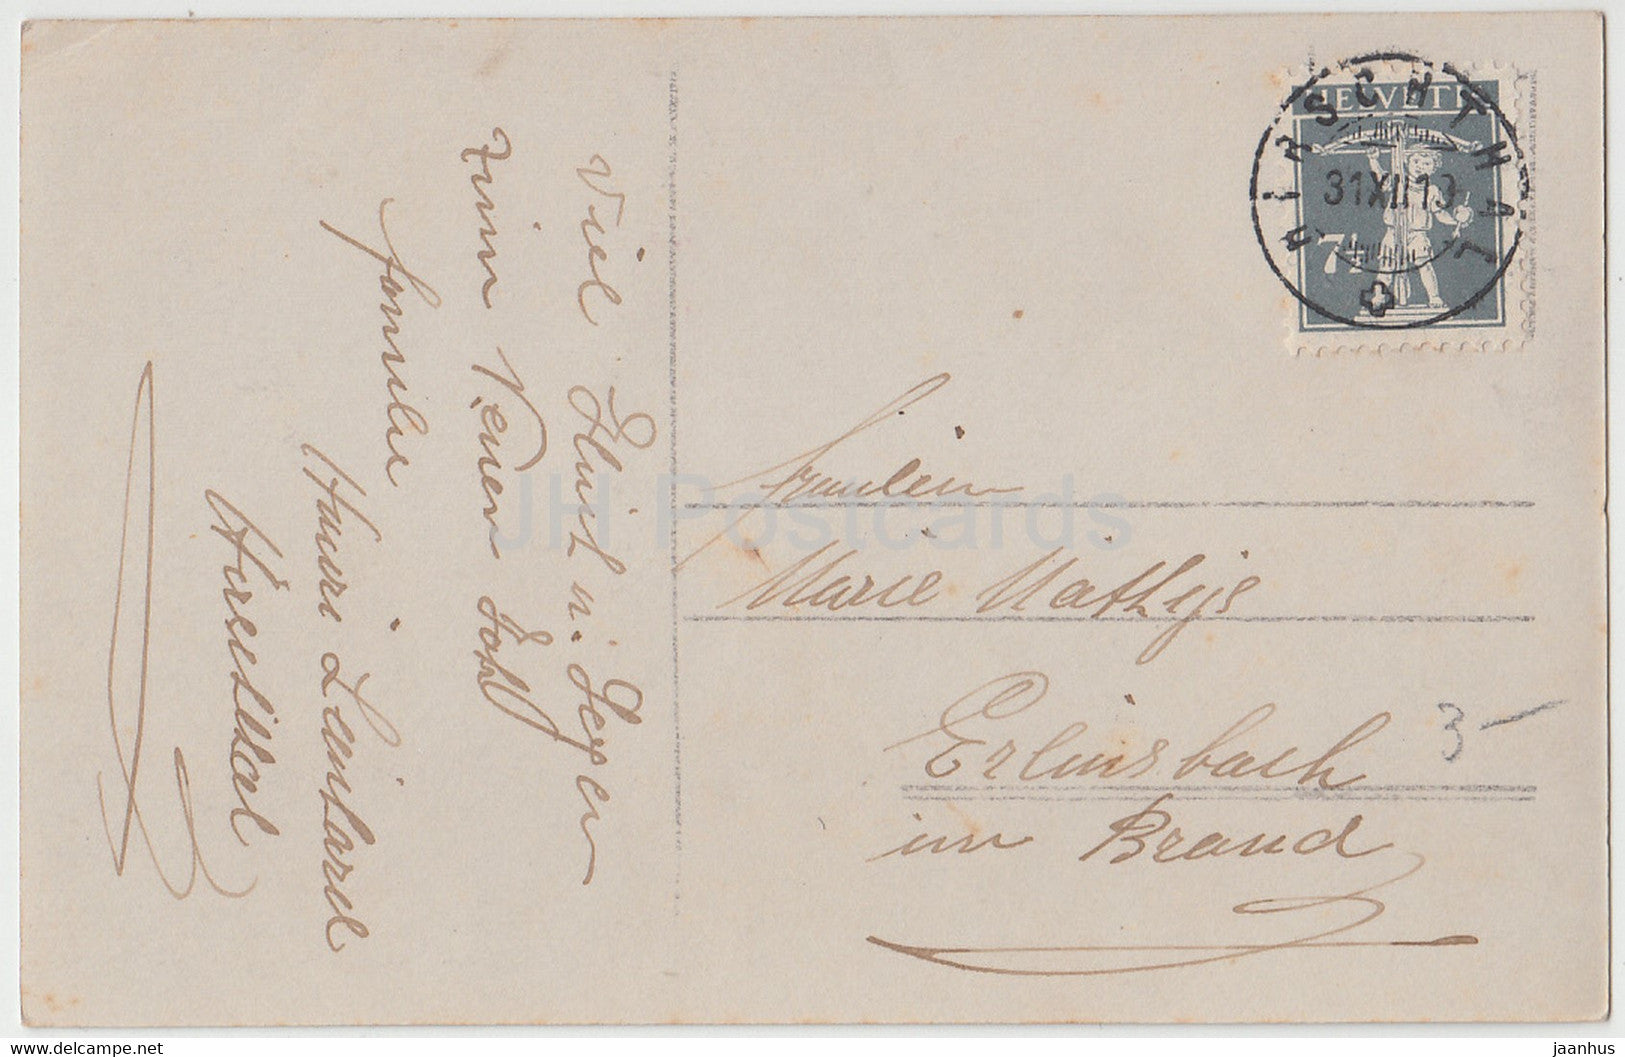 Viel Glück u. Segen
zum Neuen Jahr
familie
Hirschthal
HIRSCHTHAL
31 XII 19
HELVETIA
7½
Fräulein
Marie Mathys
Erlinsbach
im Brand
3 –
JH Postcards
delcampe.net
jaanhus